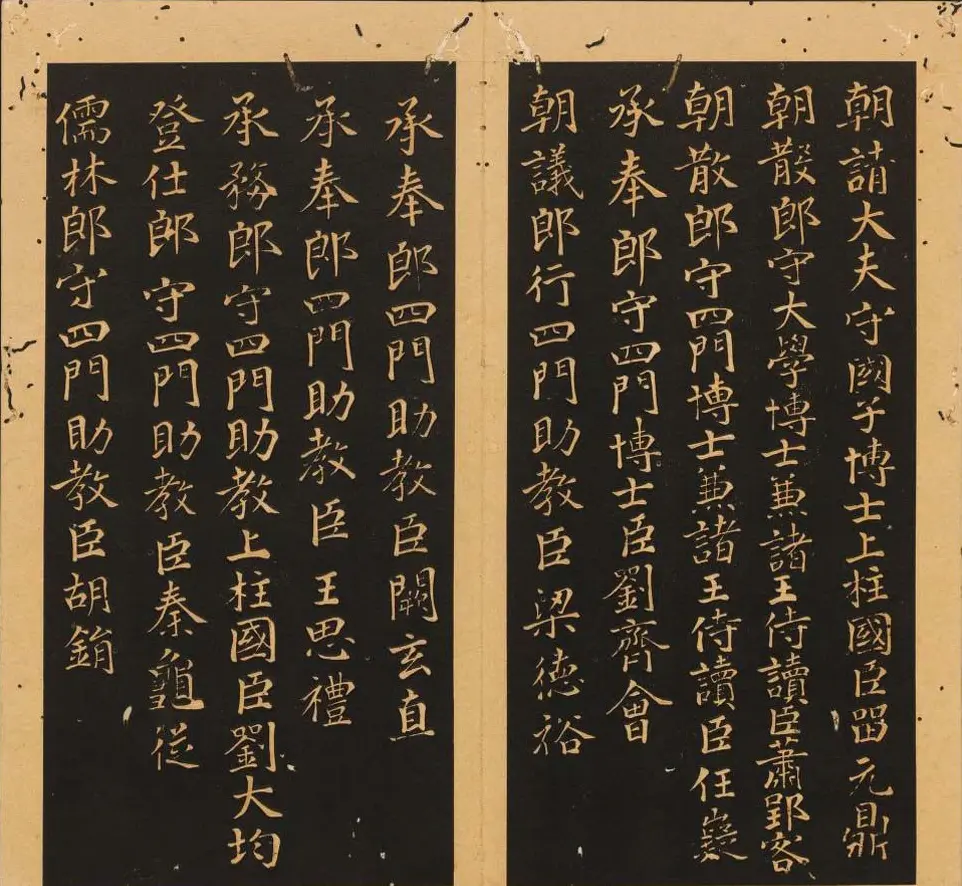 朝請大夫守國子博士上柱國臣留元鼎
朝散郎守大學博士兼諸王侍讀臣蕭郢客
朝散郎守四門博士兼諸王侍讀臣任嶷
承奉郎守四門博士臣劉齊會
朝議郎行四門助教臣梁德裕
承奉郎四門助教臣闞玄直
承奉郎四門助教臣王思禮
承務郎守四門助教上柱國臣劉大均
登仕郎守四門助教臣秦龜從
儒林郎守四門助教臣胡銷